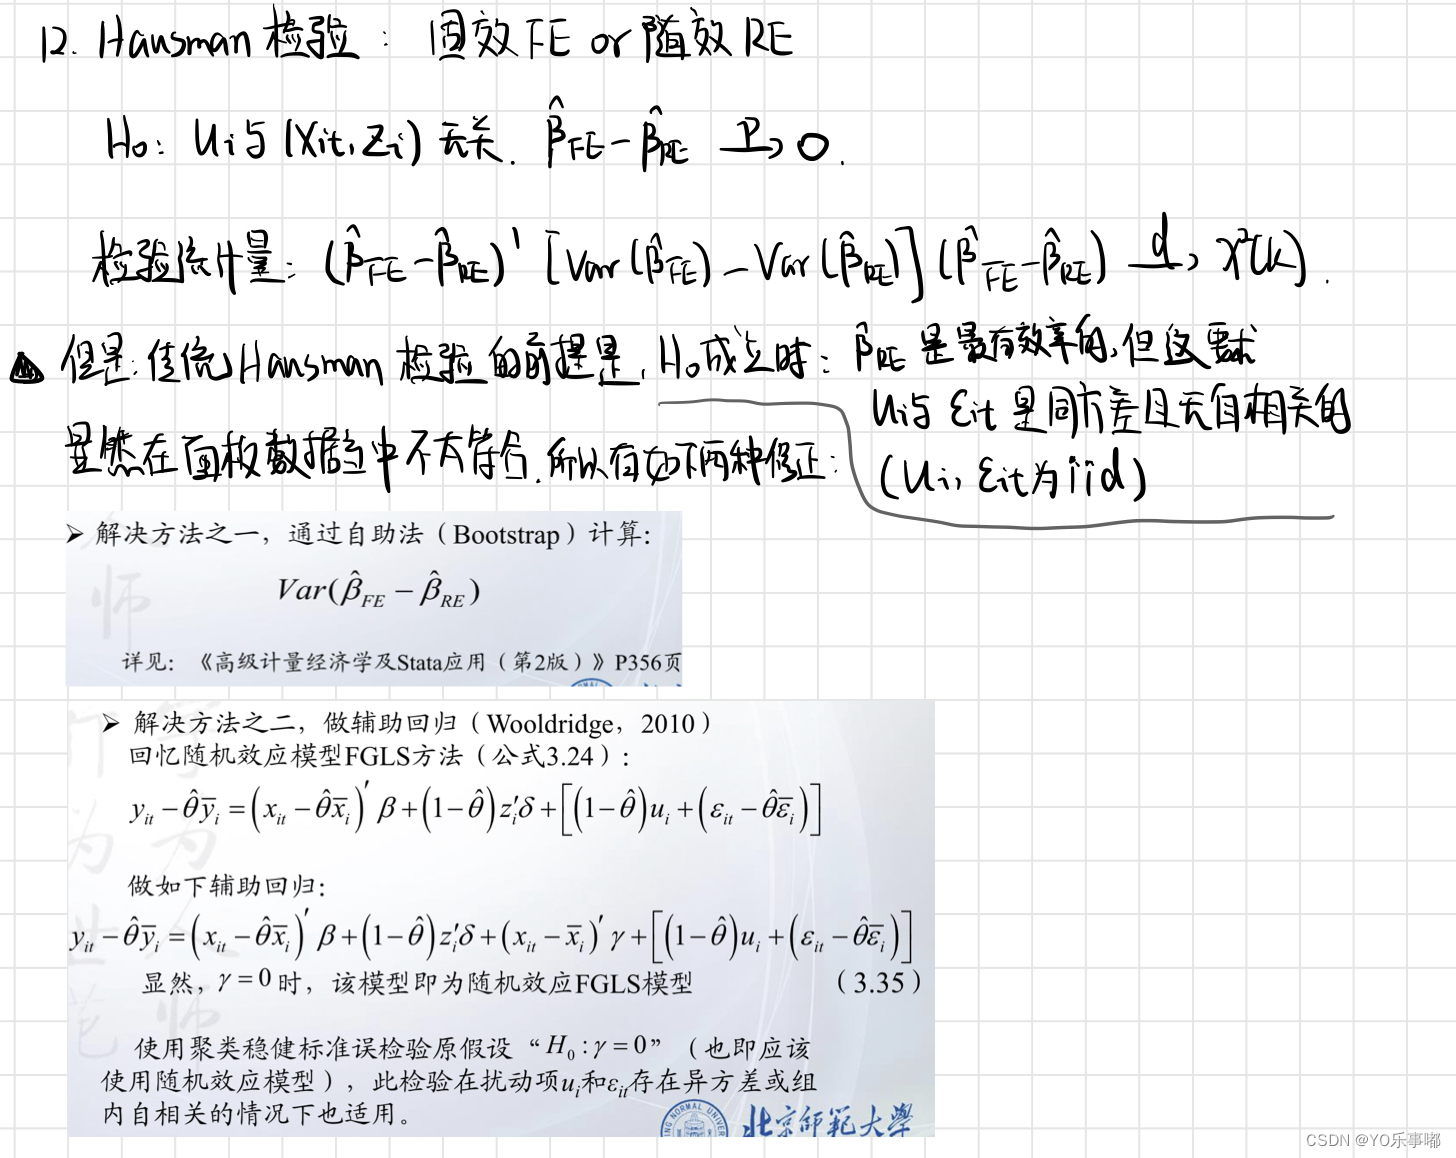 12. Hausman 检验: 固效FE or 随效RE
H₀: Ui与(Xit, Zi)无关. β̂FE-β̂RE —P→ 0.
检验统计量: (β̂FE-β̂RE)' [Var(β̂FE)-Var(β̂RE)] (β̂FE-β̂RE) —d→ χ²(k).
但是: 传统Hausman 检验的前提是, H₀成立时: β̂RE 是最有效率的, 但这要求
Ui与 εit 是同方差且无自相关的
(Ui, εit为iid)
显然在面板数据中不大符合, 所以有如下两种修正:
➢ 解决方法之一，通过自助法（Bootstrap）计算:
Var(β̂FE − β̂RE)
师
详见: 《高级计量经济学及Stata应用（第2版）》P356页
➢ 解决方法之二，做辅助回归（Wooldridge，2010）
回忆随机效应模型FGLS方法（公式3.24）:
yit − θ̂ȳi = (xit − θ̂x̄i)′ β + (1−θ̂) zi′δ + [(1−θ̂)ui + (εit − θ̂ε̄i)]
做如下辅助回归:
yit − θ̂ȳi = (xit − θ̂x̄i)′ β + (1−θ̂) zi′δ + (xit − x̄i)′ γ + [(1−θ̂)ui + (εit − θ̂ε̄i)]
显然, γ = 0 时，该模型即为随机效应FGLS模型 （3.35）
使用聚类稳健标准误检验原假设“H₀ : γ = 0”（也即应该
使用随机效应模型），此检验在扰动项ui和εit存在异方差或组
内自相关的情况下也适用。
北京师范大学
CSDN @YO乐事嘟